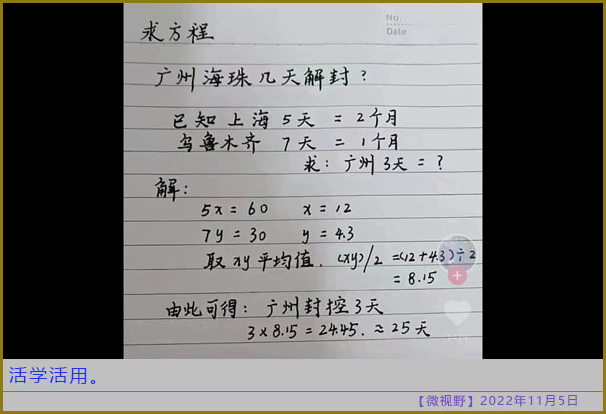 No.
Date
求方程
广州海珠几天解封？
已知上海5天 = 2个月
乌鲁木齐 7天 = 1个月
求：广州3天 = ？
解：
5x = 60 x = 12
7y = 30 y = 4.3
取xy平均值. (xy)/2 =(12+4.3)÷2
= 8.15
由此可得：广州封控3天
3×8.15 = 24.45. ≈ 25天
活学活用。
【微视野】2022年11月5日